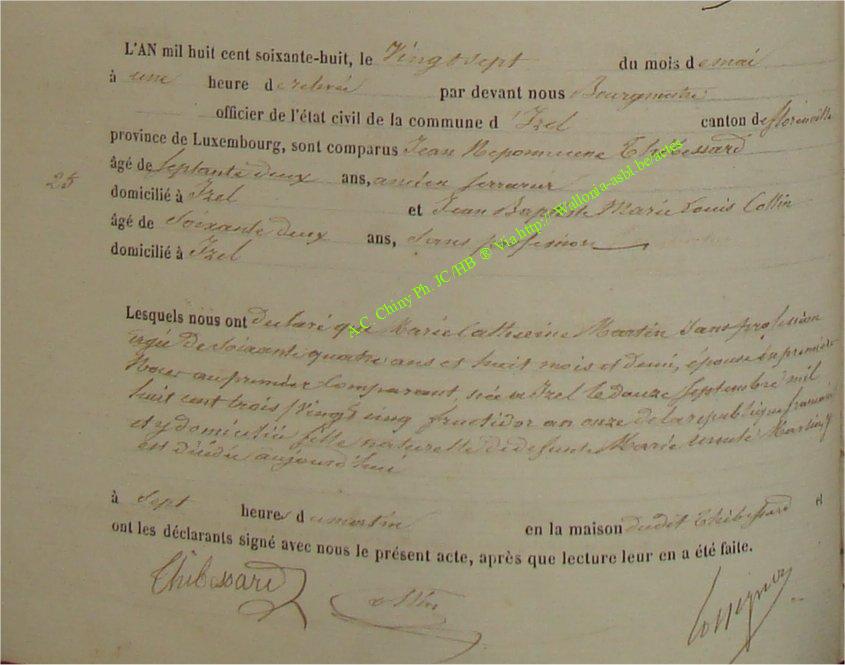 L'AN mil huit cent soixante-huit, le Vingt sept du mois de mai
à une heure de relevée par devant nous Bourgmestre
officier de l'état civil de la commune d'Izel canton de florenville
province de Luxembourg, sont comparus Jean Nepomucene Thibessard
25 âgé de Septante deux ans, ancien
domicilié à Izel et Jean Baptiste Marie Louis Collin
âgé de Soixante deux ans, Sans profession
domicilié à Izel
A.C. Chiny Ph. JC/HB ® Via http://Wallonia-asbl.be/actes
Lesquels nous ont declaré que Marie Catherine Martin Sans profession
agée de Soixante quatre ans et huit mois et demi, épouse en première
Noces au premier Comparant, née à Izel le douze Septembre mil
huit cent trois (Vingt cinq fructidor an onze de la republique française)
et y domiciliée fille naturelle de defunte Marie Martin, y
est décédée aujourd'hui
à Sept heures du matin en la maison dudit Thibessard et
ont les déclarants signé avec nous le présent acte, après que lecture leur en a été faite.
Thibessard Collin